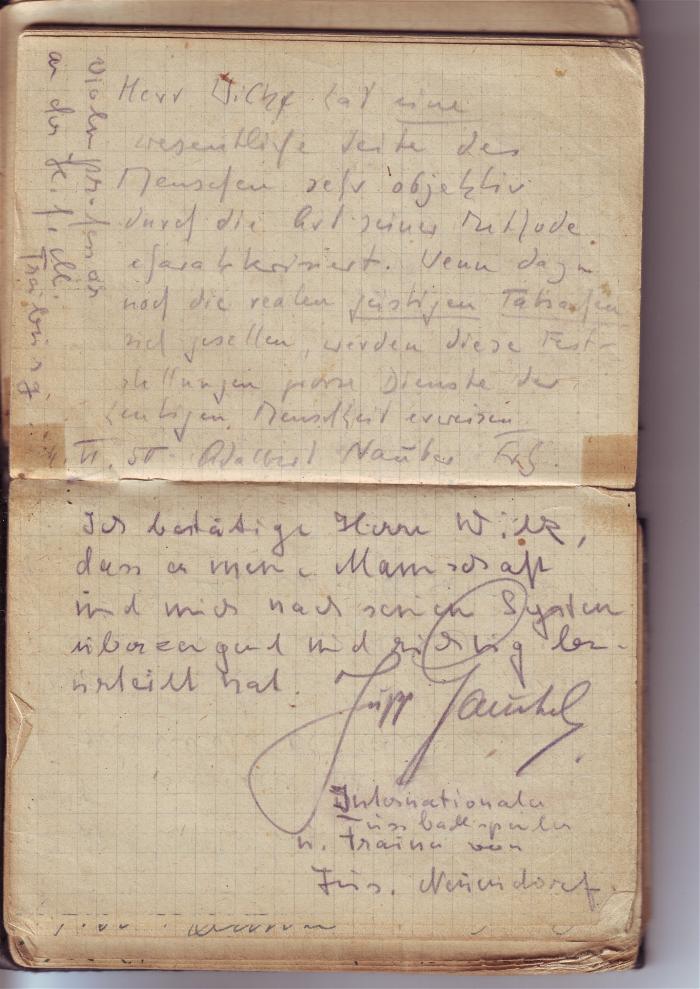 Herr Wilk hat eine
wesentliche Seite des
Menschen sehr objektiv
durch die Art seiner Methode
charakterisiert. Wenn dazu
noch die realen geistigen Tatsachen
sich gesellen, werden diese Fest-
stellungen grosse Dienste der
heutigen Menschheit erweisen.
II. 50 Adalbert Frbg.
an der H. f. M.
Freiburg
Ich bestätige Herrn Wilk,
dass er meine Mannschaft
und mich nach seinem System
überzeugend und richtig be-
urteilt hat.
Jupp
Internationaler
Fussballspieler
u. Trainer von
Tus. Neuendorf.